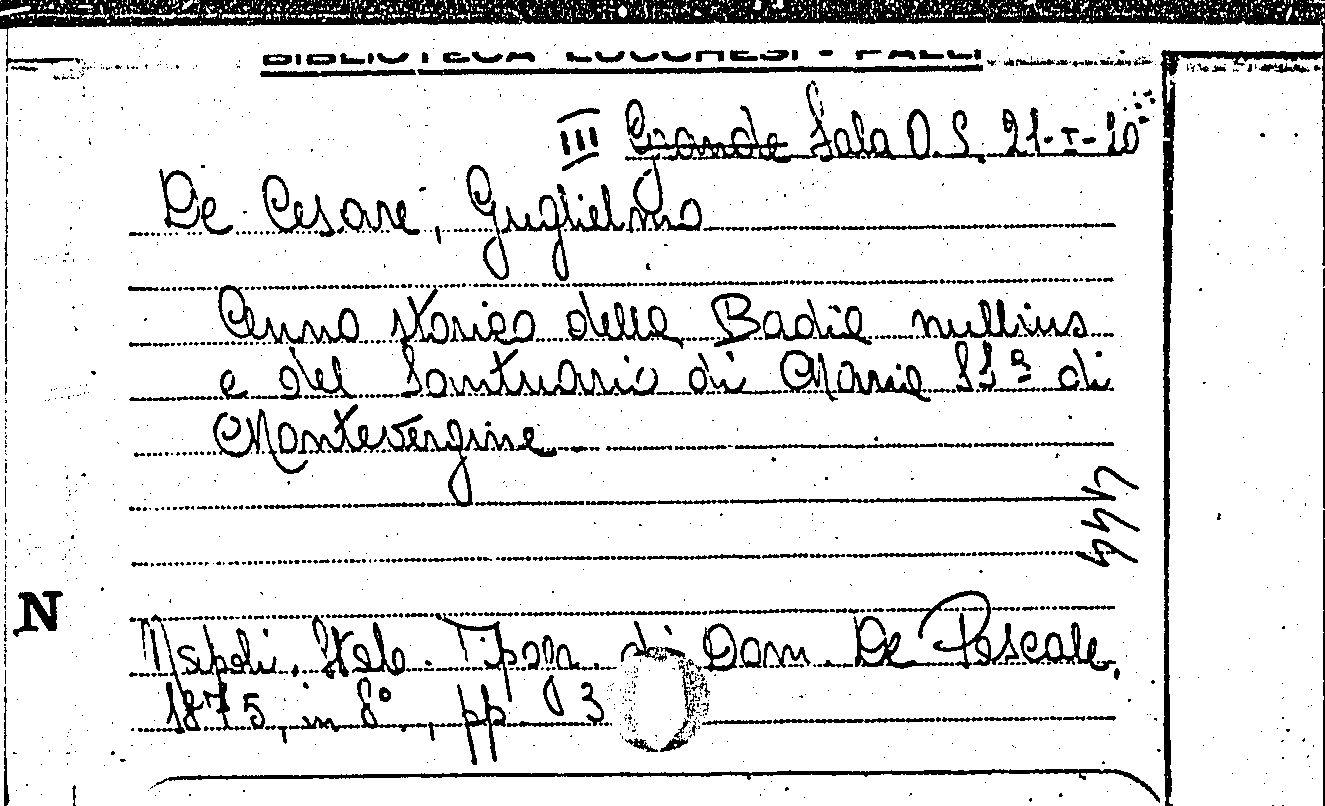 BIBLIOTECA LUCCHESI - PALLI
III Grande Sala O. S. 21-I-10
De Cesare, Guglielmo
Cenno storico della Badia nullius
e del Santuario di Maria SS.ª di
Montevergine
444
N
Napoli. Stab. Tipogr. di Dom. De Pascale,
1875, in 8°., pp. 93